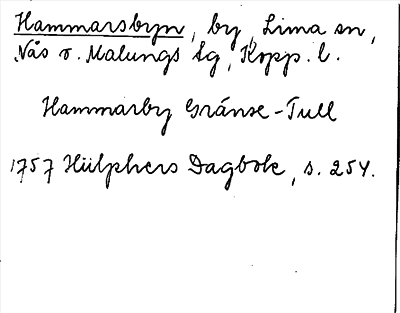 Hammarsbyn, by, Lima sn,
Nås o. Malungs tg, Kopp. l.
Hammarby Gränse-Tull
1757 Hülphers Dagbok, s. 254.